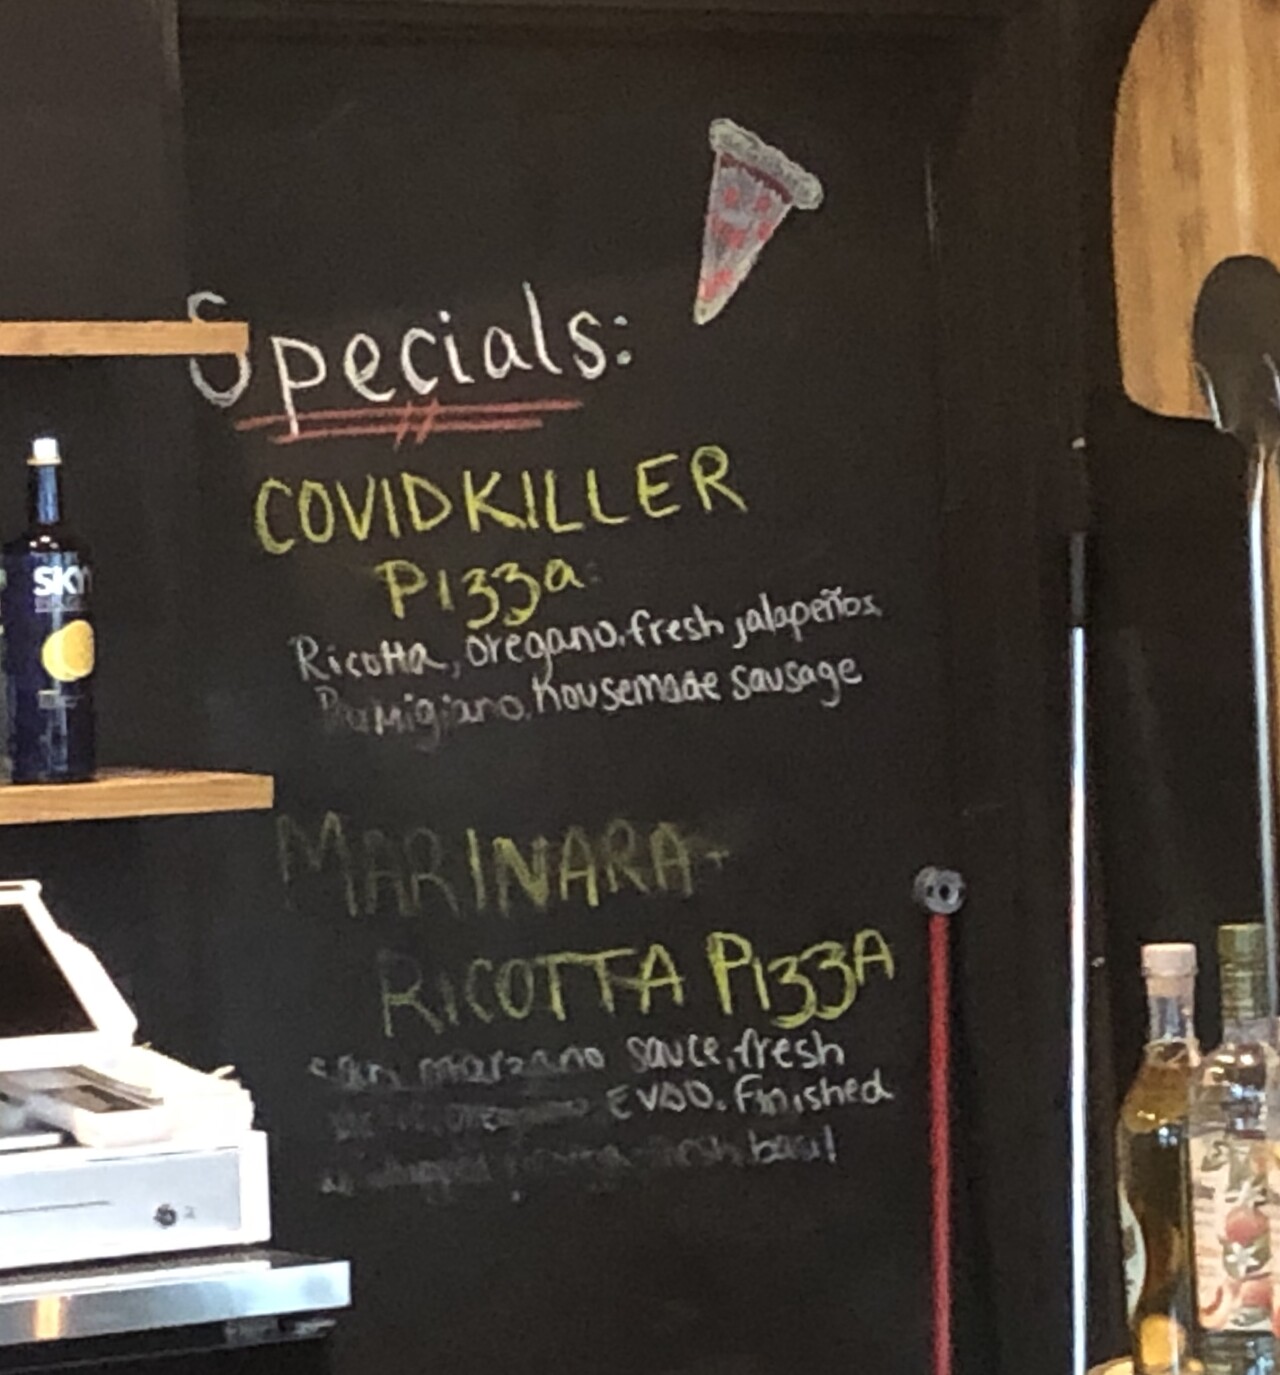 Specials:
COVIDKILLER
Pizza:
Ricotta, oregano, fresh jalapeños,
Parmigiano, housemade sausage
MARINARA +
RICOTTA PIZZA
san marzano sauce, fresh
EVOO. Finished
fresh basil
SKY